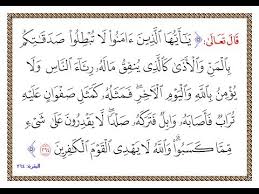 قَالَ تَعَالَى: ﴿ يَٰٓأَيُّهَا ٱلَّذِينَ ءَامَنُوا۟ لَا تُبْطِلُوا۟ صَدَقَٰتِكُم
بِٱلْمَنِّ وَٱلْأَذَىٰ كَٱلَّذِى يُنفِقُ مَالَهُۥ رِئَآءَ ٱلنَّاسِ وَلَا
يُؤْمِنُ بِٱللَّهِ وَٱلْيَوْمِ ٱلْءَاخِرِ ۖ فَمَثَلُهُۥ كَمَثَلِ صَفْوَانٍ عَلَيْهِ
تُرَابٌ فَأَصَابَهُۥ وَابِلٌ فَتَرَكَهُۥ صَلْدًا ۖ لَّا يَقْدِرُونَ عَلَىٰ شَىْءٍ
مِّمَّا كَسَبُوا۟ ۗ وَٱللَّهُ لَا يَهْدِى ٱلْقَوْمَ ٱلْكَٰفِرِينَ ﴿٢٦٤﴾ ﴾
البقرة: ٢٦٤